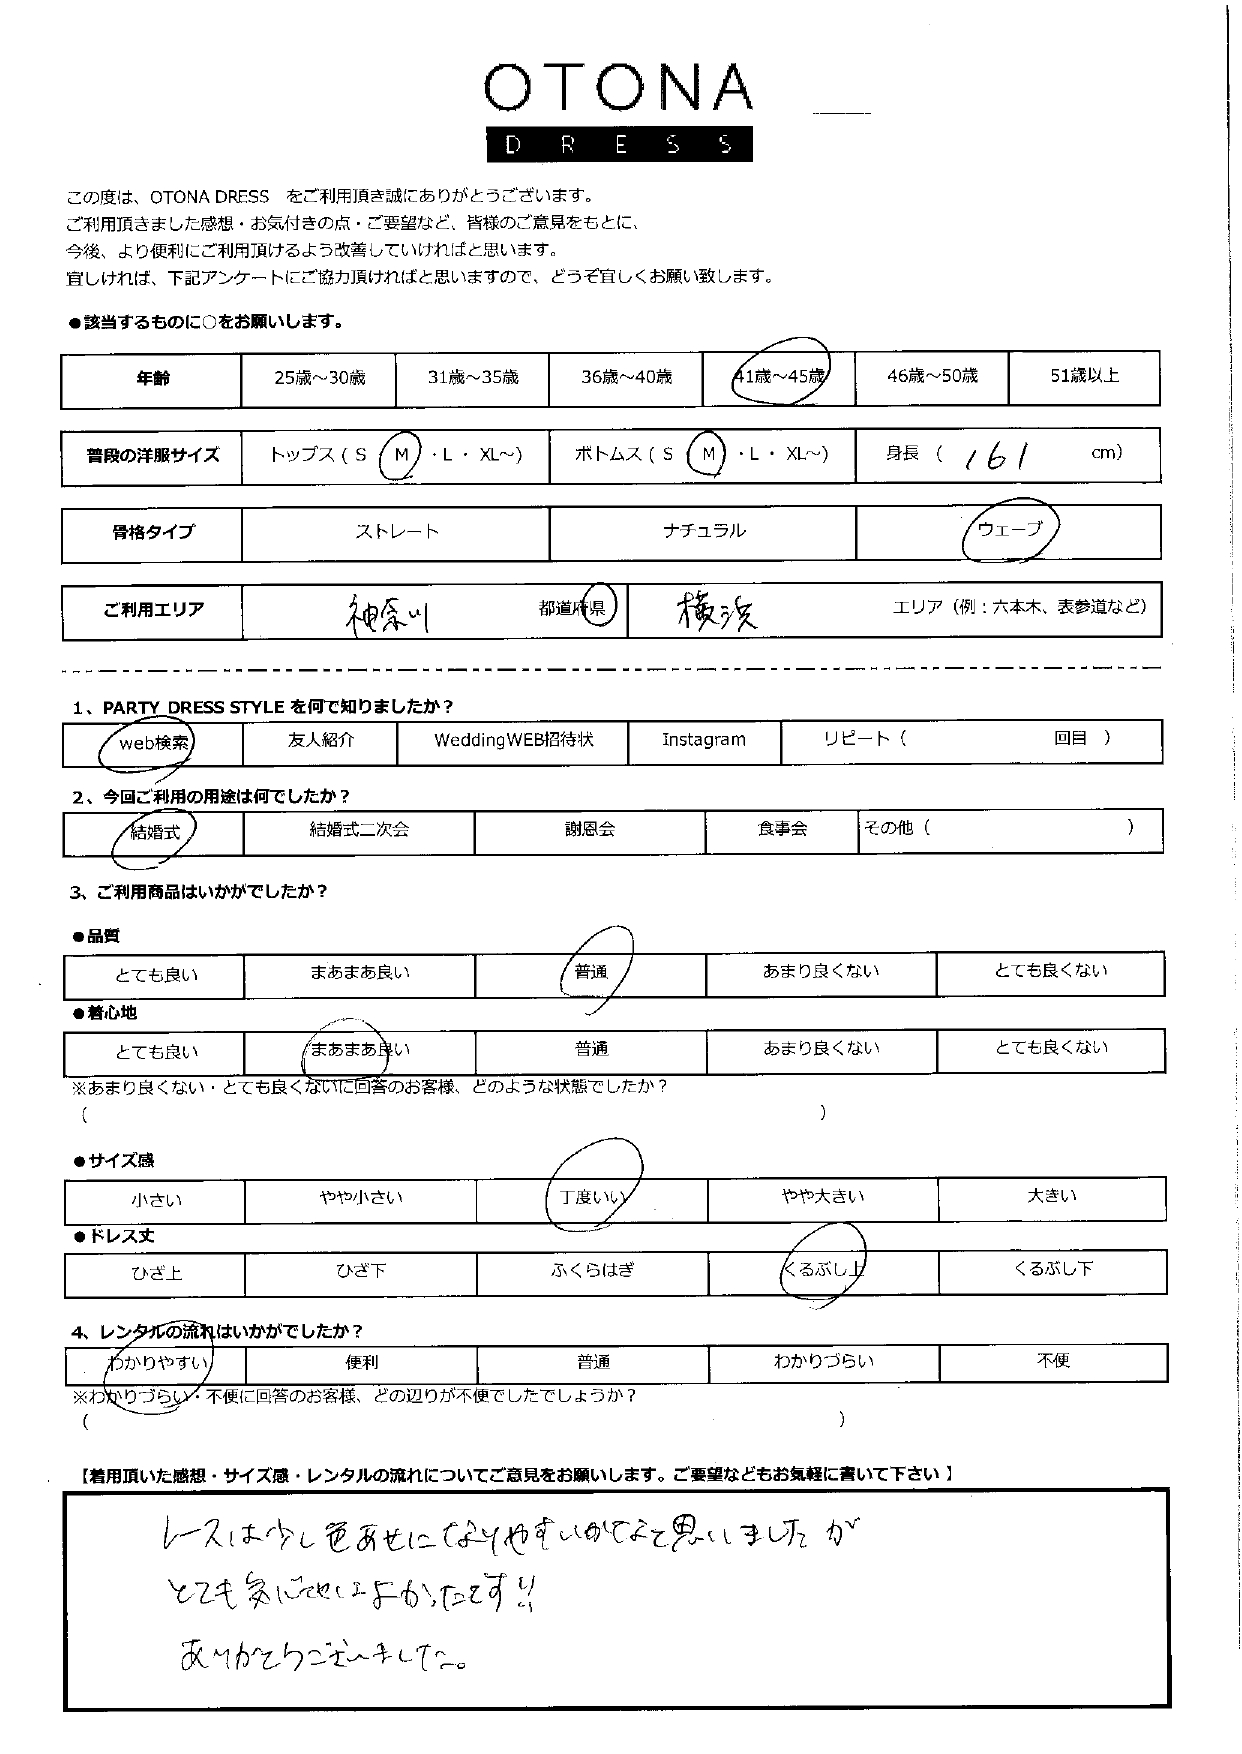 OTONA
DRESS
この度は、OTONA DRESS をご利用頂き誠にありがとうございます。
ご利用頂きました感想・お気付きの点・ご要望など、皆様のご意見をもとに、
今後、より便利にご利用頂けるよう改善していければと思います。
宜しければ、下記アンケートにご協力頂ければと思いますので、どうぞ宜しくお願い致します。
●該当するものに○をお願いします。
年齢 25歳～30歳 31歳～35歳 36歳～40歳 41歳～45歳 46歳～50歳 51歳以上
普段の洋服サイズ トップス ( S M ・L ・ XL～) ボトムス ( S M ・L ・ XL～) 身長 ( 161 cm)
骨格タイプ ストレート ナチュラル ウェーブ
ご利用エリア 神奈川 都道府県 横浜 エリア (例：六本木、表参道など)
1、PARTY DRESS STYLE を何で知りましたか？
web検索 友人紹介 WeddingWEB招待状 Instagram リピート ( 回目 )
2、今回ご利用の用途は何でしたか？
結婚式 結婚式二次会 謝恩会 食事会 その他 ( )
3、ご利用商品はいかがでしたか？
●品質
とても良い まあまあ良い 普通 あまり良くない とても良くない
●着心地
とても良い まあまあ良い 普通 あまり良くない とても良くない
※あまり良くない・とても良くないに回答のお客様、どのような状態でしたか？
( )
●サイズ感
小さい やや小さい 丁度いい やや大きい 大きい
●ドレス丈
ひざ上 ひざ下 ふくらはぎ くるぶし上 くるぶし下
4、レンタルの流れはいかがでしたか？
わかりやすい 便利 普通 わかりづらい 不便
※わかりづらい・不便に回答のお客様、どの辺りが不便でしたでしょうか？
( )
【着用頂いた感想・サイズ感・レンタルの流れについてご意見をお願いします。ご要望などもお気軽に書いて下さい 】
レースは少し色あせになりやすいかなと思いましたが
とても よかったです!!
ありがとうございました。